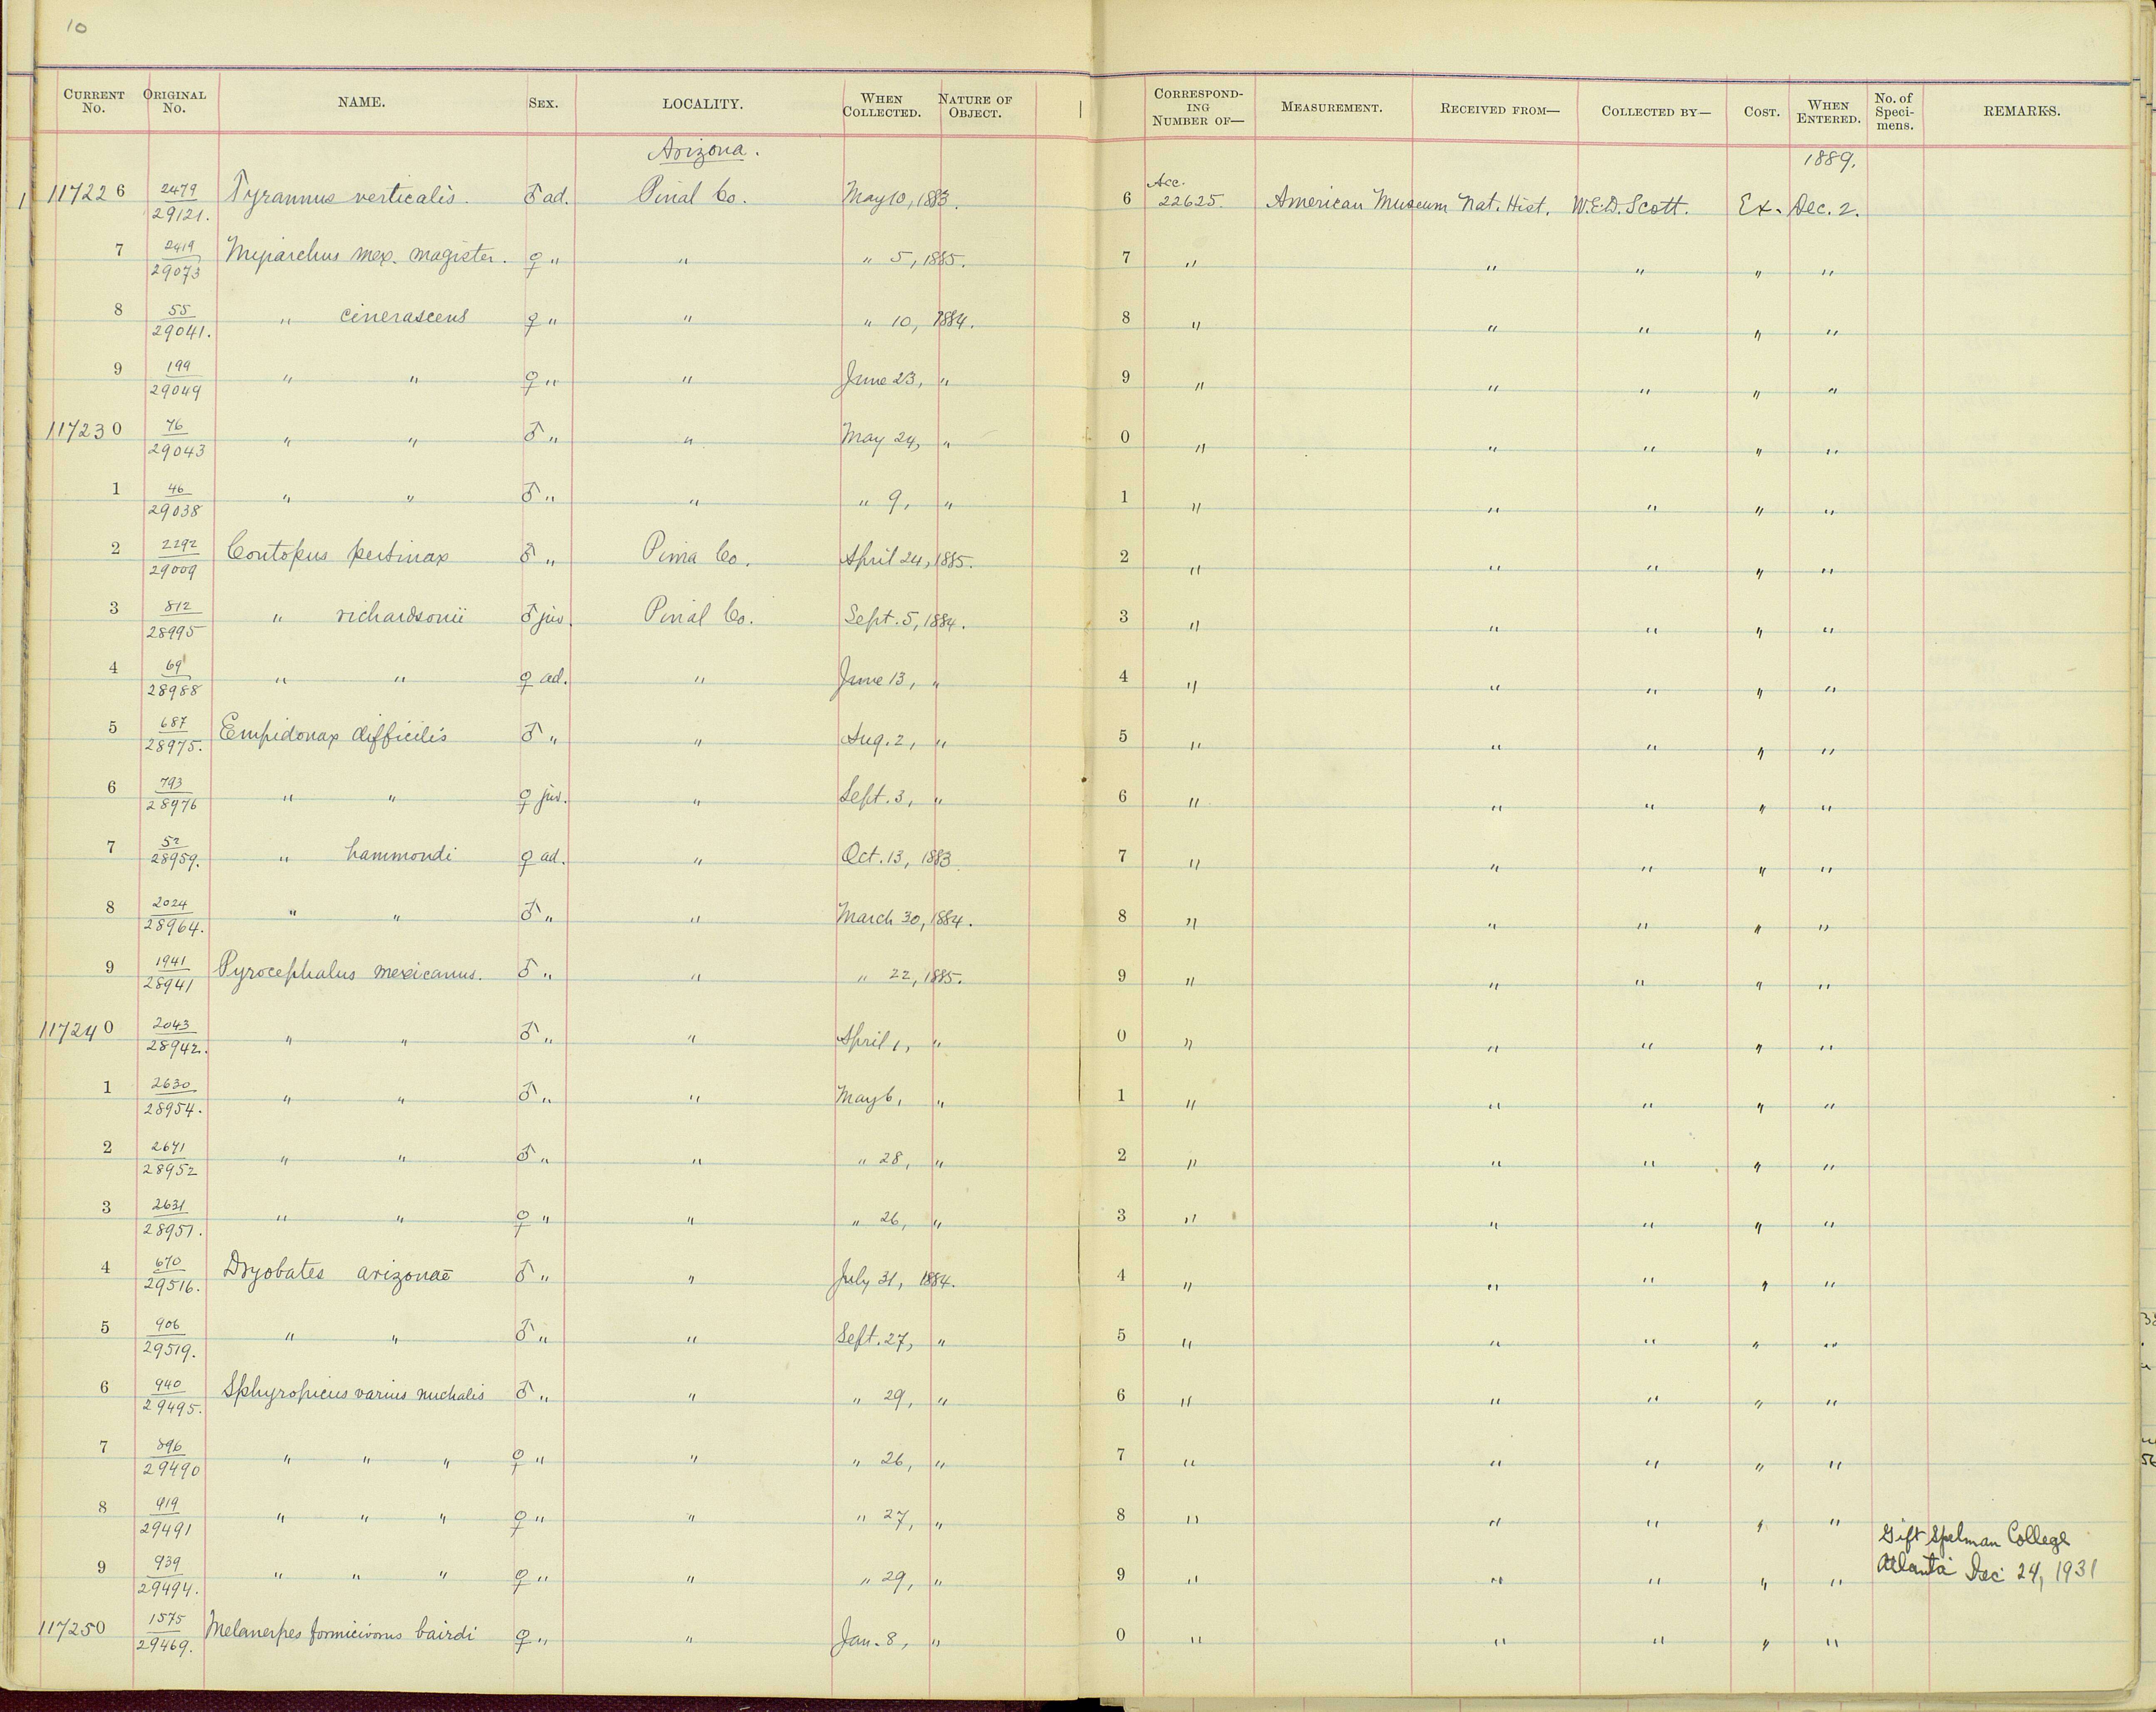 10
CURRENT No. ORIGINAL No. NAME. SEX. LOCALITY. WHEN COLLECTED. NATURE OF OBJECT. CORRESPONDING NUMBER OF— MEASUREMENT. RECEIVED FROM— COLLECTED BY— COST. WHEN ENTERED. No. of Speci-mens. REMARKS.
Arizona. 1889.
117226 2479/29121. Tyrannus verticalis. ♂ ad. Pinal Co. May 10, 1883. 6 Acc. 22625. American Museum Nat. Hist. W.E.D. Scott. Ex. Dec. 2.
7 2419/29073 Myiarchus mex. magister. ♀ " " " 5, 1885. 7 " " " " "
8 55/29041. " cinerascens ♀ " " " 10, 1884. 8 " " " " "
9 199/29049 " " ♀ " " June 23, " 9 " " " " "
117230 76/29043 " " ♂ " " May 24, " 0 " " " " "
1 46/29038 " " ♂ " " " 9, " 1 " " " " "
2 2292/29009 Contopus pertinax ♂ " Pima Co. April 24, 1885. 2 " " " " "
3 812/28995 " richardsonii ♂ juv. Pinal Co. Sept. 5, 1884. 3 " " " " "
4 69/28988 " " ♀ ad. " June 13, " 4 " " " " "
5 687/28975. Empidonax difficilis ♂ " " Aug. 2, " 5 " " " " "
6 793/28976 " " ♀ juv. " Sept. 3, " 6 " " " " "
7 52/28959. " hammondi ♀ ad. " Oct. 13, 1883. 7 " " " " "
8 2024/28964. " " ♂ " " March 30, 1884. 8 " " " " "
9 1941/28941 Pyrocephalus mexicanus. ♂ " " " 22, 1885. 9 " " " " "
117240 2043/28942. " " ♂ " " April 1, " 0 " " " " "
1 2630/28954. " " ♂ " " May 6, " 1 " " " " "
2 2671/28952 " " ♂ " " " 28, " 2 " " " " "
3 2631/28957. " " ♀ " " " 26, " 3 " " " " "
4 670/29516. Dryobates arizonae ♂ " " July 31, 1884. 4 " " " " "
5 906/29519. " " ♂ " " Sept. 27, " 5 " " " " "
6 940/29495. Sphyropicus varius nuchalis ♂ " " " 29, " 6 " " " " "
7 896/29490 " " " ♀ " " " 26, " 7 " " " " "
8 919/29491 " " " ♀ " " " 27, " 8 " " " " "
Gift Spelman College
9 939/29494. " " " ♀ " " " 29, " 9 " " " " " Atlanta Dec 24, 1931
117250 1575/29469. Melanerpes formicivorus bairdi ♀ " " Jan. 8, " 0 " " " " "